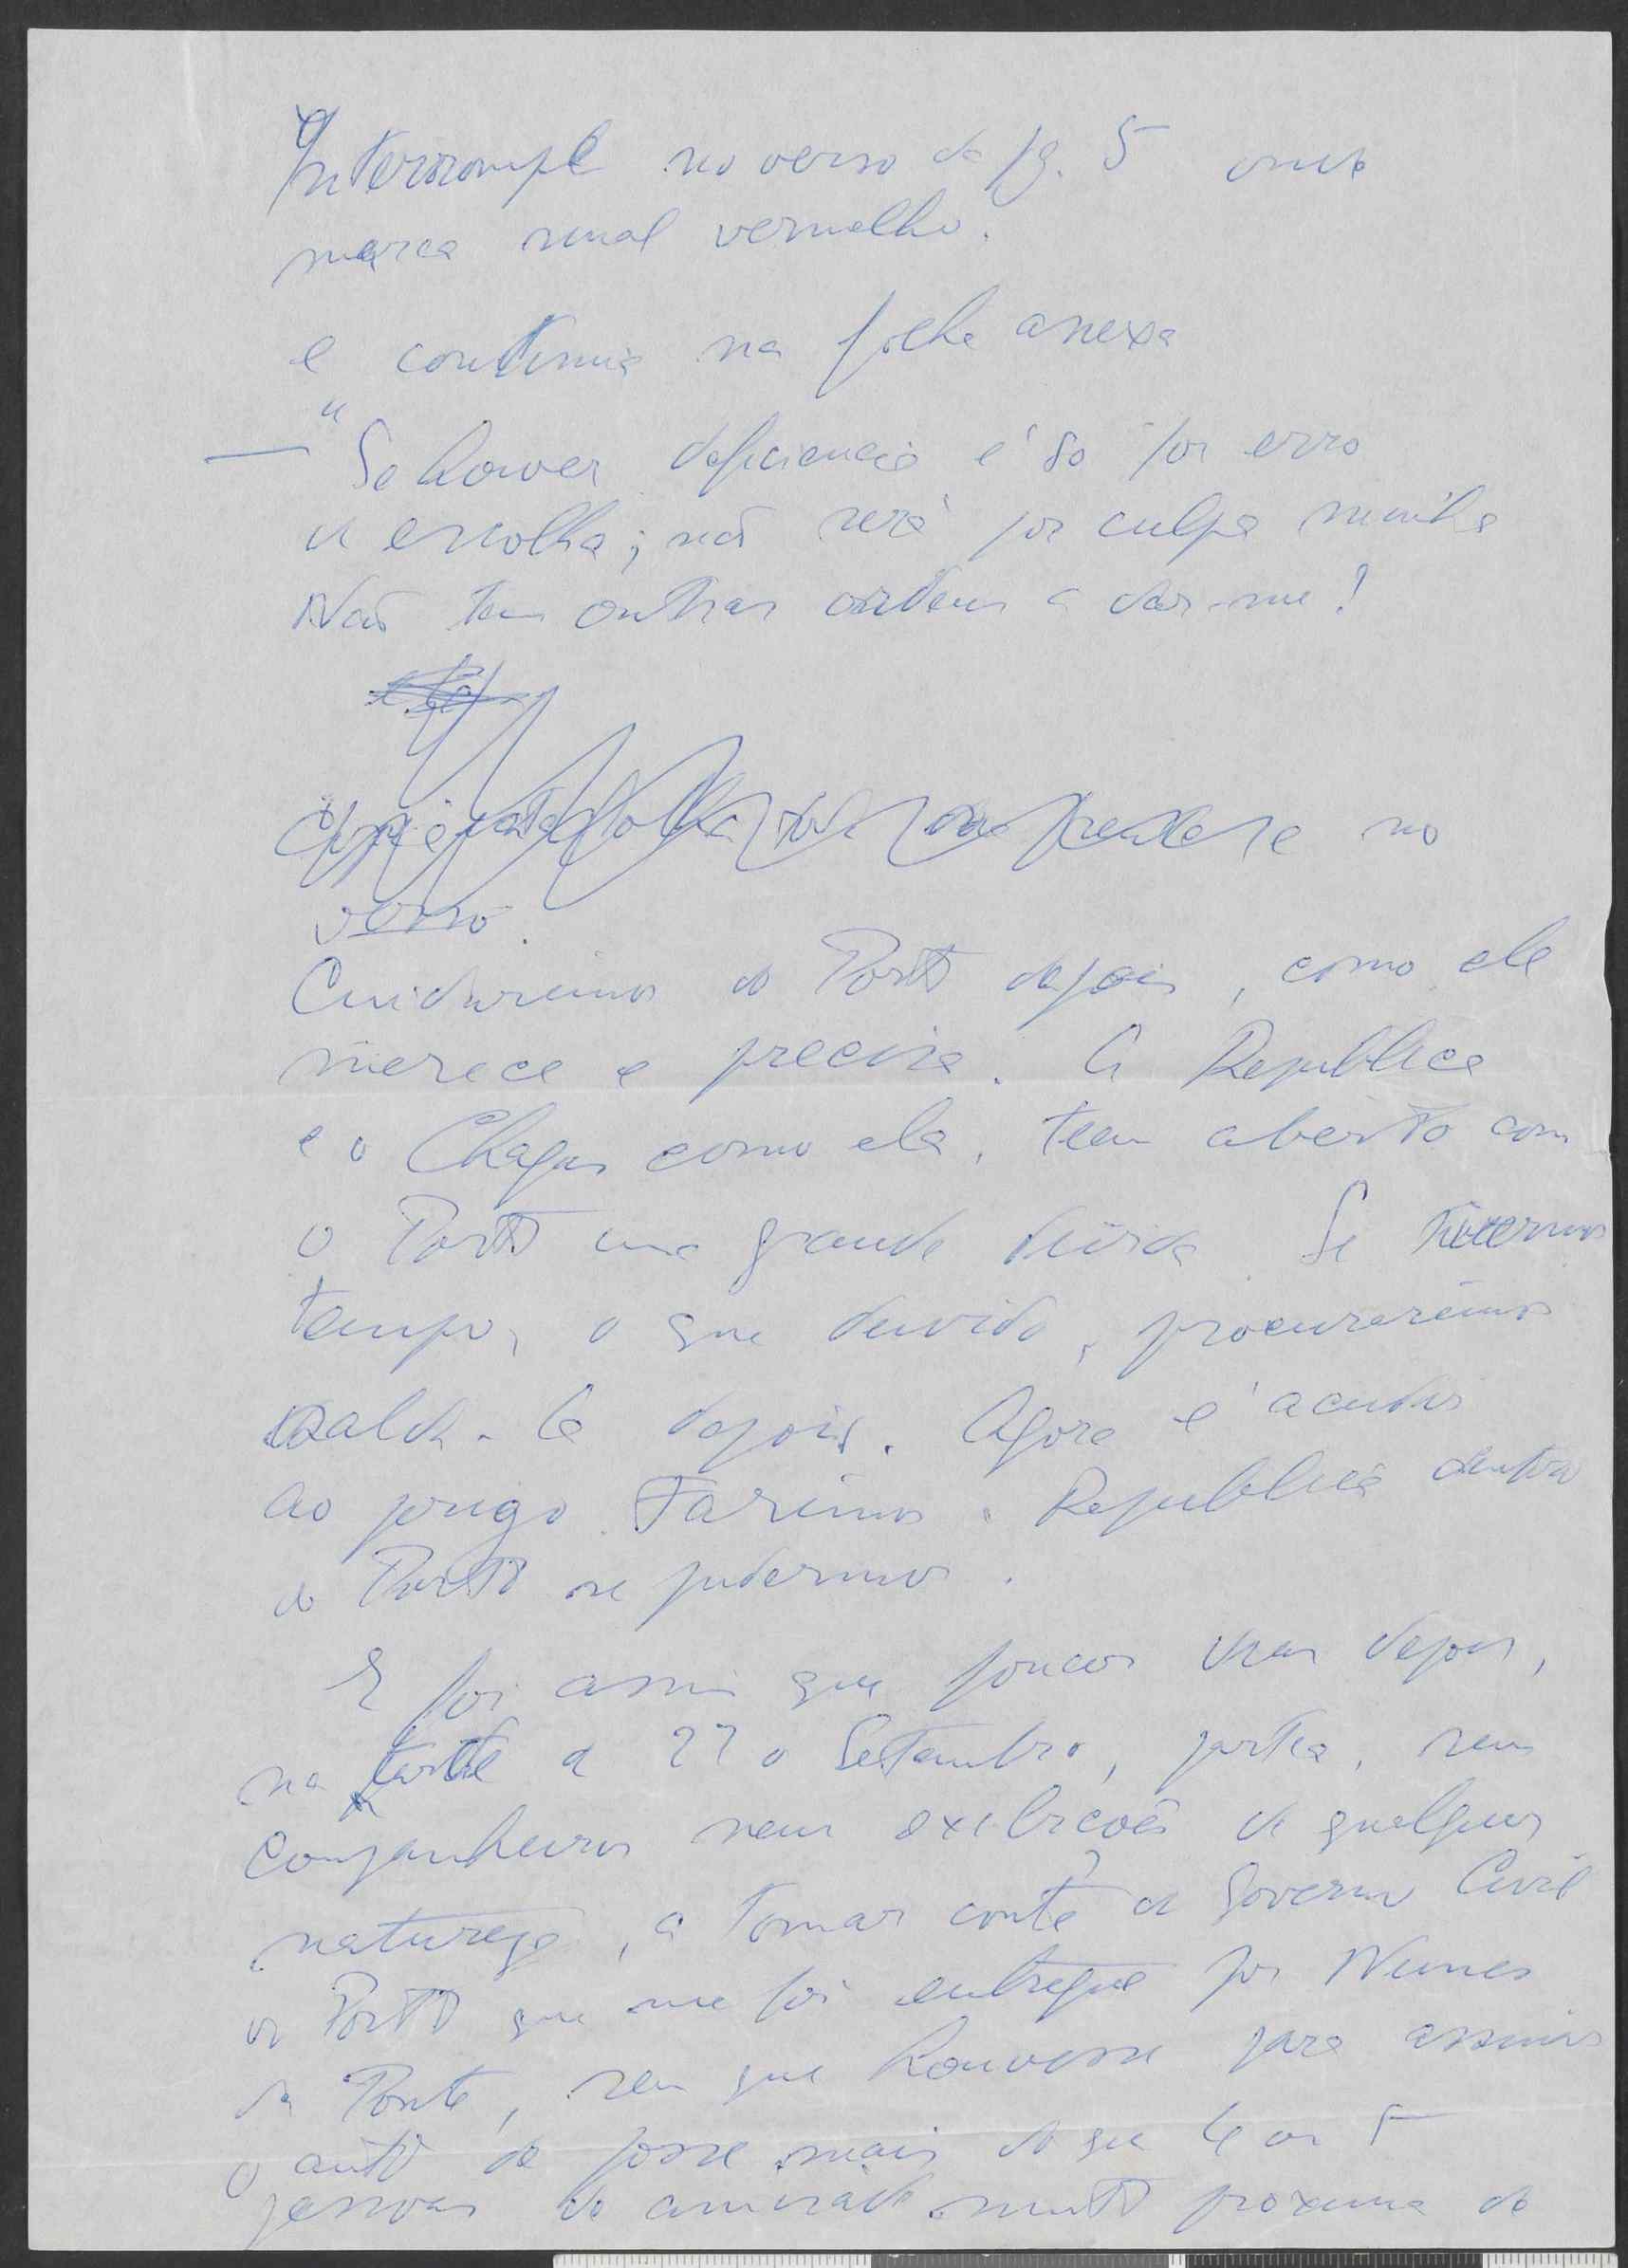 Interrompe no verso da pg. 5 onde
marca sinal vermelho.
e continua na folha anexa
— "Se houver deficiencia é só por erro
de escolha; não será por culpa minha
Não tem outras ordens a dar-me?
no
verso.
Cuidaremos do Porto depois, como ele
merece e precisa. A Republica
e o Chagas como ela, teem aberto com
o Porto uma grande divida. Se tivermos
tempo, o que duvido, procuraremos
salda-la depois. Agora é acudir
ao perigo. Faremos a Republica dentro
do Porto se pudermos.
E foi assim que poucos dias depois,
na tarde de 27 de Setembro, partia, sem
companheiros nem exibicões de qualquer
natureza, a tomar conta do Governo Civil
do Porto que me foi entregue por Nunes
da Ponte, sem que houvesse para assinar
o auto de posse mais do que 4 ou 5
pessoas de amizade muito proxima do